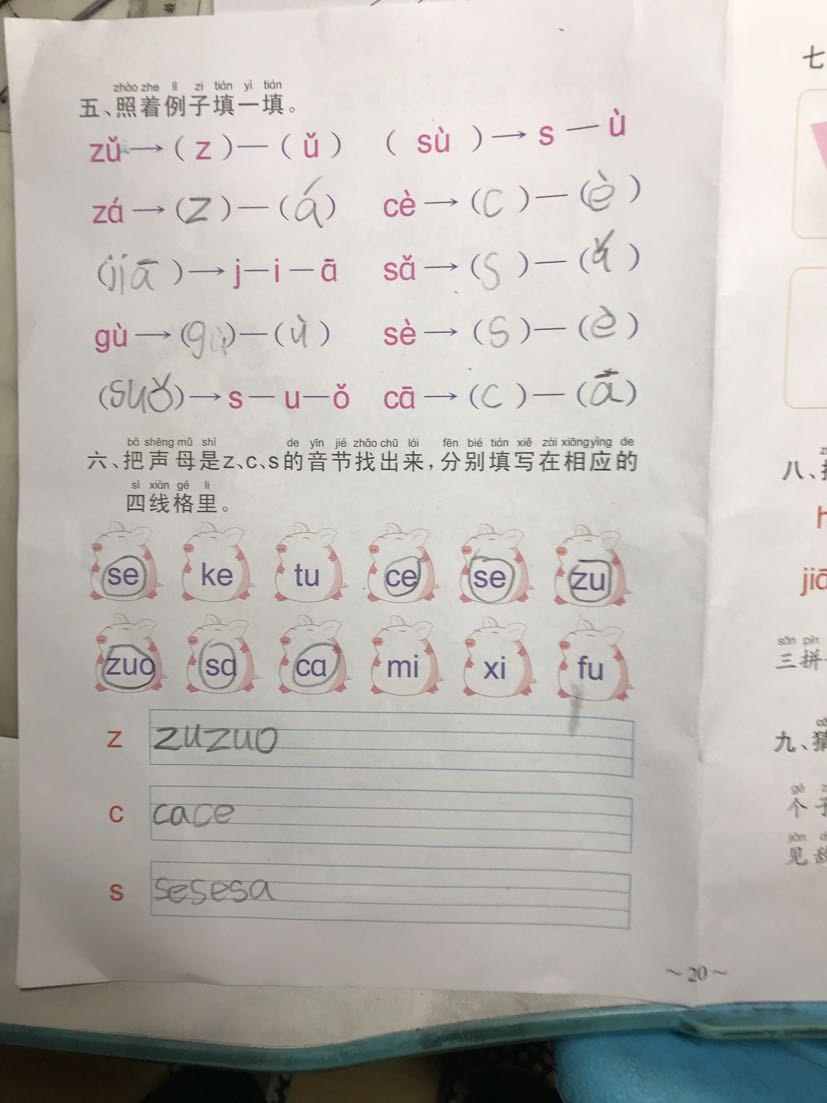 zhào zhe lì zi tián yì tián
五、照着例子填一填。
zǔ→( z )—( ǔ ) ( sù )→s—ù
zá→(z)—(á) cè→(c)—(è)
(jiā)→j—i—ā sǎ→(s)—(ǎ)
gù→(g)—(ù) sè→(s)—(è)
(suǒ)→s—u—ǒ cā→(c)—(ā)
bǎ shēng mǔ shì de yīn jié zhǎo chū lái fēn bié tián xiě zài xiāng yìng de
六、把声母是z、c、s的音节找出来,分别填写在相应的
sì xiàn gé li
四线格里。
se ke tu ce se zu
zuo sa ca mi xi fu
z zuzuo
c cace
s sesesa
~20~
七
八、
jiā
sān pīn
三拼
九、猜
gè
个
jiàn
见